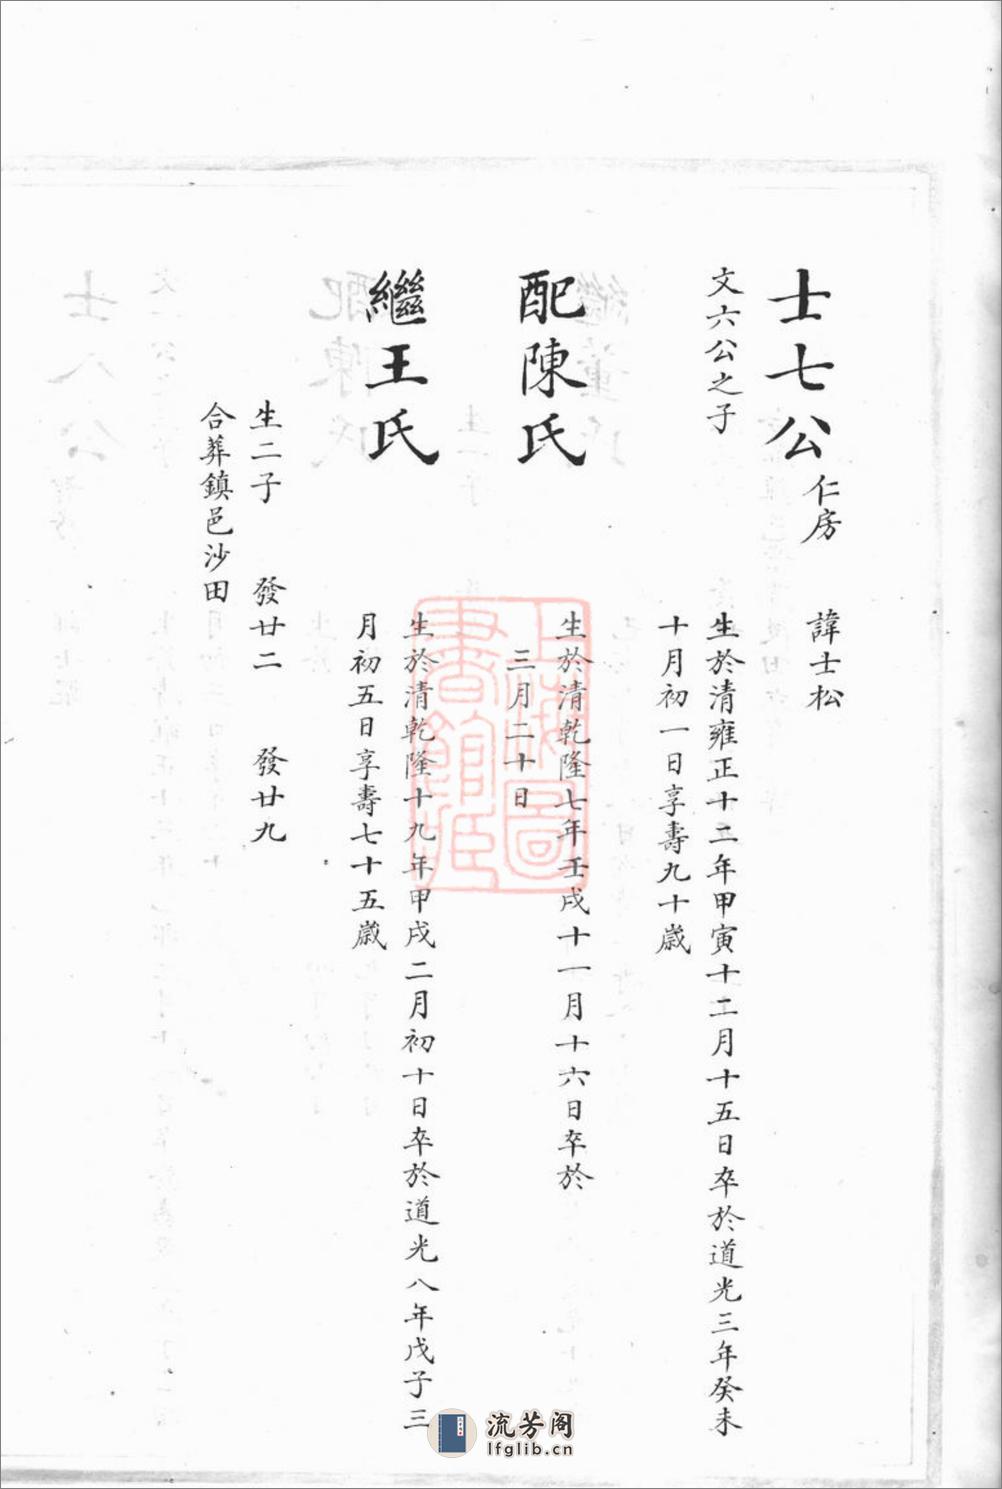 士七公仁房 諱士松
文六公之子
生於清雍正十二年甲寅十二月十五日卒於道光三年癸未
十月初一日享壽九十歲
配陳氏
生於清乾隆七年壬戌十一月十六日卒於
三月二十日
繼王氏
生於清乾隆十九年甲戌二月初十日卒於道光八年戊子三
月初五日享壽七十五歲
生二子 發廿二 發廿九
合葬鎮邑沙田
上海圖
書館藏
流芳阁
lfglib.cn